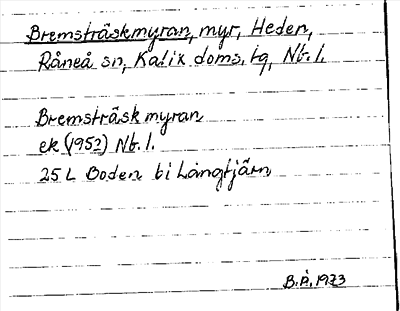 Bremsträskmyran, myr, Heden,
Råneå sn, Kalix doms. tg, Nb. l.
Bremsträskmyran
ek (1952) Nb. l.
25 L Boden bi Långtjärn
B.P. 1973